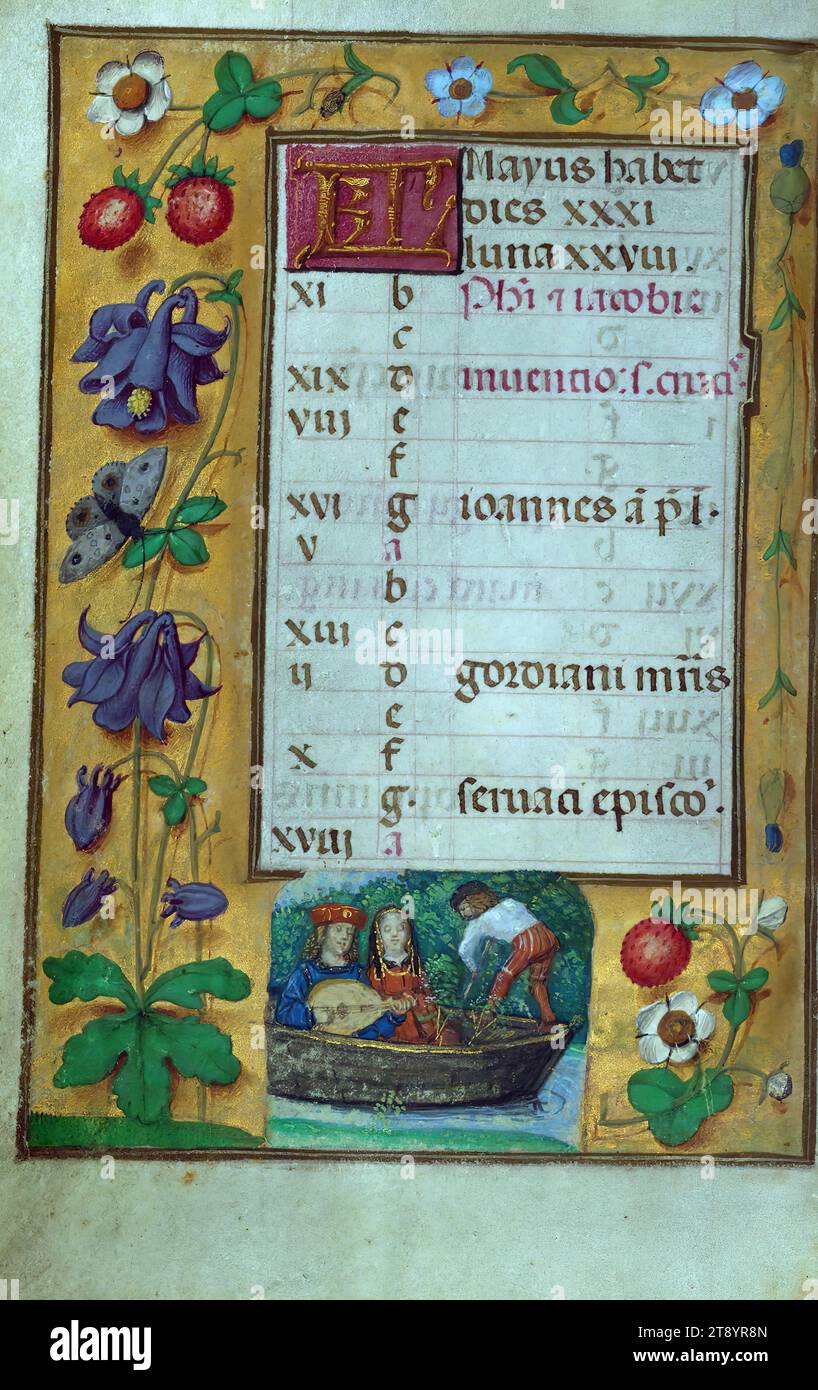 KL Mayus habet
dies xxxi
luna xxviii.
xi b Phi ⁊ iacobi
c
xix d inuentio: s. cruc
viii e
f
xvi g ioannes a p l.
v a
b
xiii c
ii d gordiani mris
e
x f
g. seruaci episco
xviii a
a
alamy
Image ID: 2T8YR8N
www.alamy.com